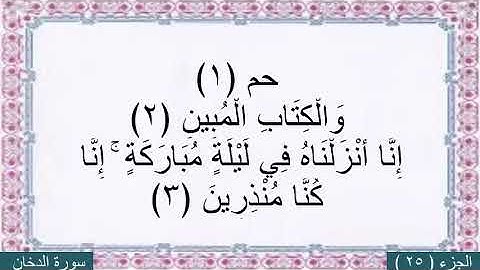 حم (١)
وَالْكِتَابِ الْمُبِينِ (٢)
إِنَّا أَنْزَلْنَاهُ فِي لَيْلَةٍ مُبَارَكَةٍ ۚ إِنَّا
كُنَّا مُنْذِرِينَ (٣)
الجزء ( ٢٥ )
سورة الدخان